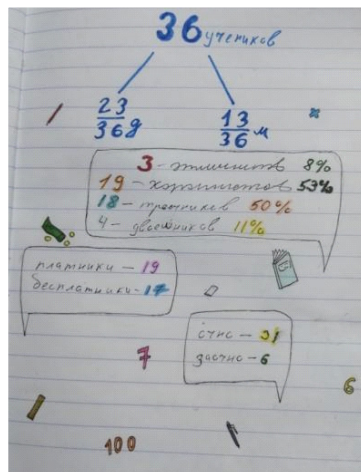 36 учеников
23/36 д 13/36 м
3 - отличников 8%
19 - хорошистов 53%
18 - троечников 50%
4 - двоечников 11%
платники - 19
бесплатники - 17
очно - 31
заочно - 6
7
6
100